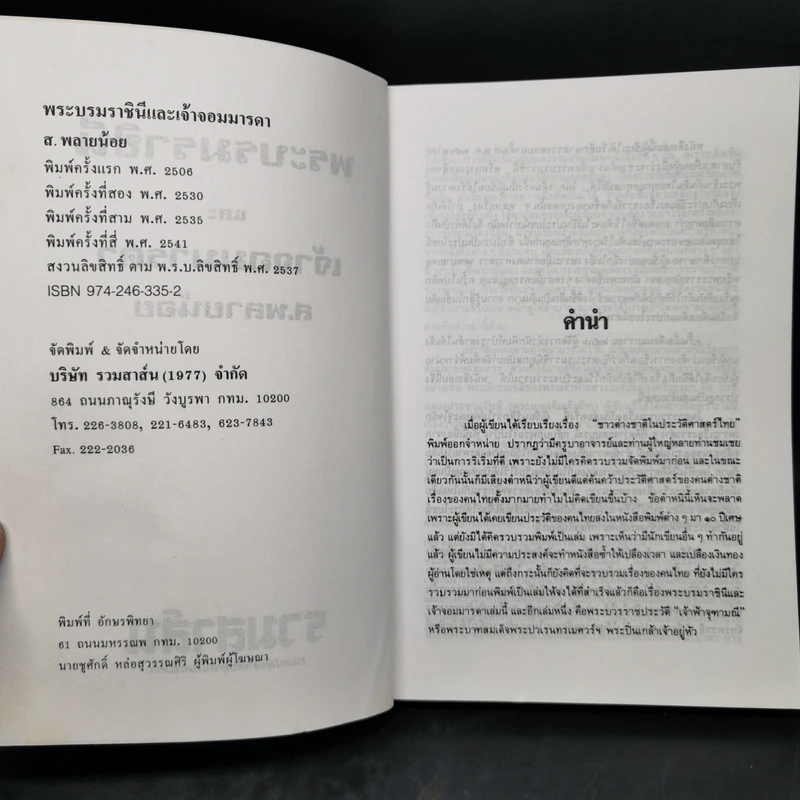 พระบรมราชินีและเจ้าจอมมารดา
ส. พลายน้อย
พิมพ์ครั้งแรก พ.ศ. 2506
พิมพ์ครั้งที่สอง พ.ศ. 2530
พิมพ์ครั้งที่สาม พ.ศ. 2535
พิมพ์ครั้งที่สี่ พ.ศ. 2541
สงวนลิขสิทธิ์ ตาม พ.ร.บ.ลิขสิทธิ์ พ.ศ. 2537
ISBN 974-246-335-2
จัดพิมพ์ & จัดจำหน่ายโดย
บริษัท รวมสาส์น (1977) จำกัด
864 ถนนภาณุรังษี วังบูรพา กทม. 10200
โทร. 226-3808, 221-6483, 623-7843
Fax. 222-2036
พิมพ์ที่ อักษรพิทยา
61 ถนนมหรรณพ กทม. 10200
นายชูศักดิ์ หล่อสุวรรณศิริ ผู้พิมพ์ผู้โฆษณา
คำนำ
เมื่อผู้เขียนได้เรียบเรียงเรื่อง "ชาวต่างชาติในประวัติศาสตร์ไทย"
พิมพ์ออกจำหน่าย ปรากฏว่ามีครูบาอาจารย์และท่านผู้ใหญ่หลายท่านชมเชย
ว่าเป็นการริเริ่มที่ดี เพราะยังไม่มีใครคิดรวบรวมจัดพิมพ์มาก่อน และในขณะ
เดียวกันนั้นก็มีเสียงตำหนิว่าผู้เขียนดีแต่ค้นคว้าประวัติศาสตร์ของคนต่างชาติ
เรื่องของคนไทยตั้งมากมายทำไมไม่คิดเขียนขึ้นบ้าง ข้อตำหนินี้เห็นจะพลาด
เพราะผู้เขียนได้เคยเขียนประวัติของคนไทยลงในหนังสือพิมพ์ต่าง ๆ มา ๑๐ ปีเศษ
แล้ว แต่ยังมิได้คิดรวบรวมพิมพ์เป็นเล่ม เพราะเห็นว่ามีนักเขียนอื่น ๆ ทำกันอยู่
แล้ว ผู้เขียนไม่มีความประสงค์จะทำหนังสือซ้ำให้เปลืองเวลา และเปลืองเงินทอง
ผู้อ่านโดยใช่เหตุ แต่ถึงกระนั้นก็ยังคิดที่จะรวบรวมเรื่องของคนไทย ที่ยังไม่มีใคร
รวบรวมมาก่อนพิมพ์เป็นเล่มให้จงได้ที่สำเร็จแล้วก็คือเรื่องพระบรมราชินีและ
เจ้าจอมมารดาเล่มนี้ และอีกเล่มหนึ่ง คือพระบวรราชประวัติ "เจ้าฟ้าจุฑามณี"
หรือพระบาทสมเด็จพระปวเรนทรเมศวร์ฯ พระปิ่นเกล้าเจ้าอยู่หัว